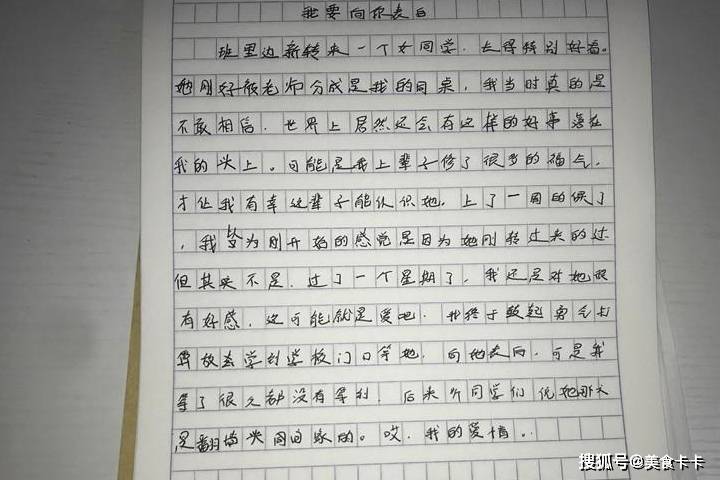 我要向你表白
班里边新转来一个女同学，长得特别好看。
她刚好被老师分成是我的同桌，我当时真的是
不敢相信，世界上居然还会有这样的好事落在
我的头上。可能是我上辈子修了很多的福气，
才让我有幸这辈子能认识她，上了一周的课了
，我以为刚开始的感觉是因为她刚转过来的过
但其实不是，过了一个星期了，我还是对她很
有好感，这可能就是爱吧。我终于鼓起勇气
放去学到学校门口等她，向她表白，可是我
等了很久都没有等到，后来听同学们说她那天
是翻墙头回家的。哎，我的爱情。
搜狐号@美食卡卡